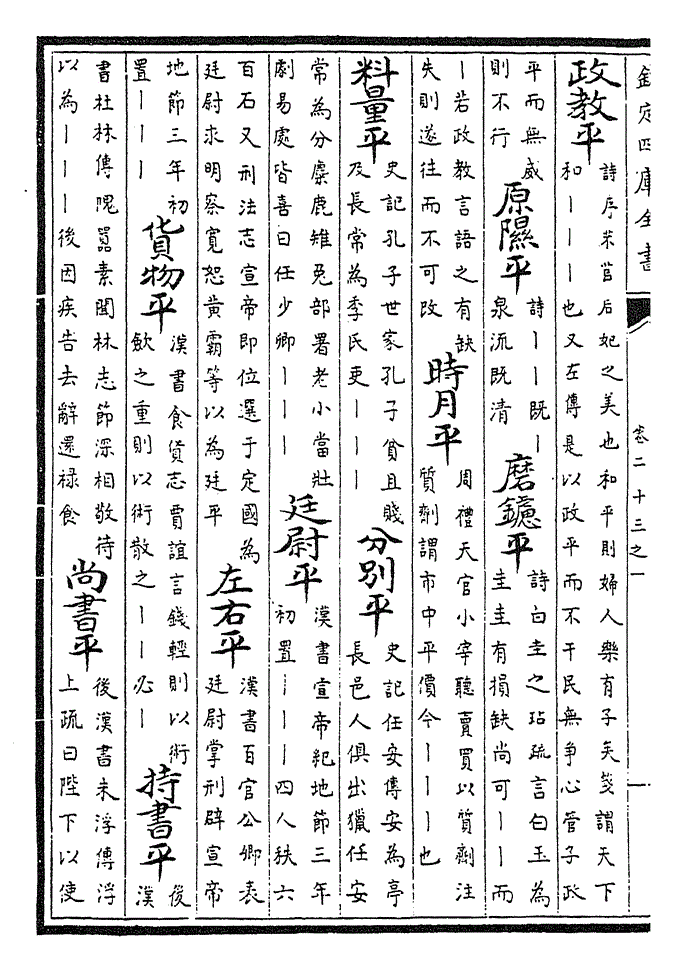 欽定四庫全書
卷二十三之一
一
政教平
詩序芣苢后妃之美也和平則婦人樂有子矣箋謂天下
和丨丨丨也又左傳是以政平而不干民無爭心管子政
平而無威
則不行
原隰平
詩丨丨既丨
泉流既清
磨鑢平
詩白圭之玷疏言白玉為
圭圭有損缺尚可丨丨而
丨若政教言語之有缺
失則遂往而不可改
時月平
周禮天官小宰聽賣買以質劑注
質劑謂市中平價今丨丨丨也
料量平
史記孔子世家孔子貧且賤
及長常為季氏吏丨丨丨
分別平
史記任安傳安為亭
長邑人俱出獵任安
常為分麋鹿雉兔部署老小當壯
劇易處皆喜曰任少卿丨丨丨
廷尉平
漢書宣帝紀地節三年
初置丨丨丨四人秩六
百石又刑法志宣帝即位選于定國為
廷尉求明察寬恕黃霸等以為廷平
左右平
漢書百官公卿表
廷尉掌刑辟宣帝
地節三年初
置丨丨丨
貨物平
漢書食貨志賈誼言錢輕則以術
歛之重則以術散之丨丨必丨
持書平
後
漢
書杜林傳隗囂素聞林志節深相敬待
以為丨丨丨後因疾告去辭還祿食
尚書平
後漢書朱浮傳浮
上疏曰陛下以使